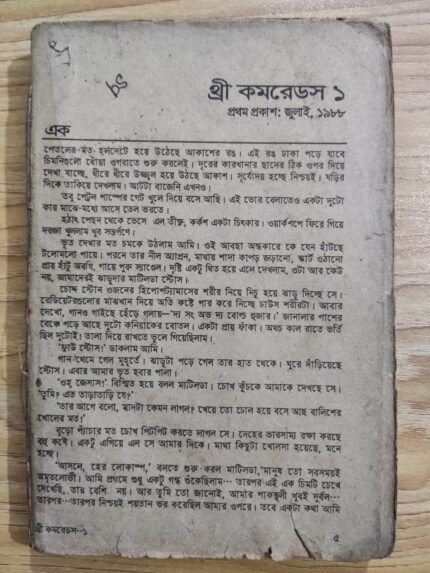 থ্রী কমরেডস ১
প্রথম প্রকাশ: জুলাই, ১৯৮৮
এক
পেতলের মত হলদেটে হয়ে উঠেছে আকাশের রঙ। এই রঙ ঢাকা পড়ে যাবে
চিমনিগুলো ধোঁয়া ওগরাতে শুরু করলেই। দূরের কারখানার ছাদের ঠিক ওপর দিয়ে
দেখা যাচ্ছে, ধীরে ধীরে উজ্জ্বল হয়ে উঠছে আকাশ। সূর্যোদয় হচ্ছে নিশ্চয়ই। ঘড়ির
দিকে তাকিয়ে দেখলাম। আটটা বাজেনি এখনও।
তবু পেট্রল পাম্পের গেট খুলে দিয়ে বসে আছি। এই ভোর বেলাতেও একটা দুটো
কার মাঝে-মধ্যে আসে তেল ভরতে।
হঠাৎ পেছন থেকে ভেসে এল তীক্ষ্ণ, কর্কশ একটা চিৎকার। ওয়ার্কশপে ফিরে গিয়ে
দরজা খুললাম খুব সন্তর্পণে।
ভূত দেখার মত চমকে উঠলাম আমি। ওই আবছা অন্ধকারে কে যেন হাঁটছে
টলোমলো পায়ে। পরনে তার নীল অ্যাপ্রন, মাথায় শাদা কাপড় জড়ানো, স্কার্ট ওঠানো
প্রায় হাঁটু অবধি, পায়ে পুরু স্যান্ডেল। দৃষ্টি একটু থিত হয়ে এলে দেখলাম, ওটা আর কেউ
নয়, আমাদেরই ঝাড়ুদার মাটিলডা স্টোস।
চোদ্দ স্টোন ওজনের হিপোপটেমাসের শরীর নিয়ে নিচু হয়ে ঝাড়ু দিচ্ছে সে।
রেডিয়েটরগুলোর মাঝখান দিয়ে অতি কষ্টে পার করে নিচ্ছে ঢাউস শরীরটা। আবার
দেখো, গানও গাইছে হেঁড়ে গলায়—'দ্য সং অভ দ্য বোল্ড হুজার।' জানালার পাশের
বেঞ্চে পড়ে আছে দুটো কনিয়াকের বোতল। একটা প্রায় ফাঁকা। অথচ কাল রাতে ভর্তি
ছিল দুটোই। তালা দিয়ে রাখতে ভুলে গিয়েছিলাম।
'ফ্রাউ স্টোস!' ডাকলাম আমি।
গান থেমে গেল মুহূর্তে। ঝাড়ুটা পড়ে গেল তার হাত থেকে। ঘুরে দাঁড়িয়েছে
স্টোস। এবার আমার ভূত হবার পালা।
'ওহ্ জেসাস!' বিস্মিত হয়ে বলল মাটিলডা। চোখ কুঁচকে আমাকে দেখছে সে।
'তুমি? এত তাড়াতাড়ি যে?'
'তার আগে বলো, স্বাদটা কেমন লাগল? খেয়ে তো ঢোল হয়ে বসে আছ বালিশের
খোলের মত!'
বুড়ো প্যাঁচার মত চোখ পিটপিট করতে লাগল সে। দেহের ভারসাম্য রক্ষা করছে
বহু কষ্টে। একটু এগিয়ে এল সে আমার দিকে। মাথা কিছুটা খোলসা হয়েছে, মনে
হচ্ছে।
'আসলে, হের লোকাম্প,' বলতে শুরু করল মাটিলডা, 'মানুষ তো সবসময়ই
অমৃতলোভী। আমি প্রথমে শুধু একটু গন্ধ শুঁকেছিলাম… তারপর এই এক চিমটি চেখে
দেখেছি, তার বেশি নয়। আর তুমি তো জানোই, আমার পাকস্থলী খুবই দুর্বল…
তারপর…তারপর নিশ্চয়ই শয়তান ভর করেছিল আমার ওপরে। তবে একটা কথা আমি
থ্রী কমরেডস–১
৫